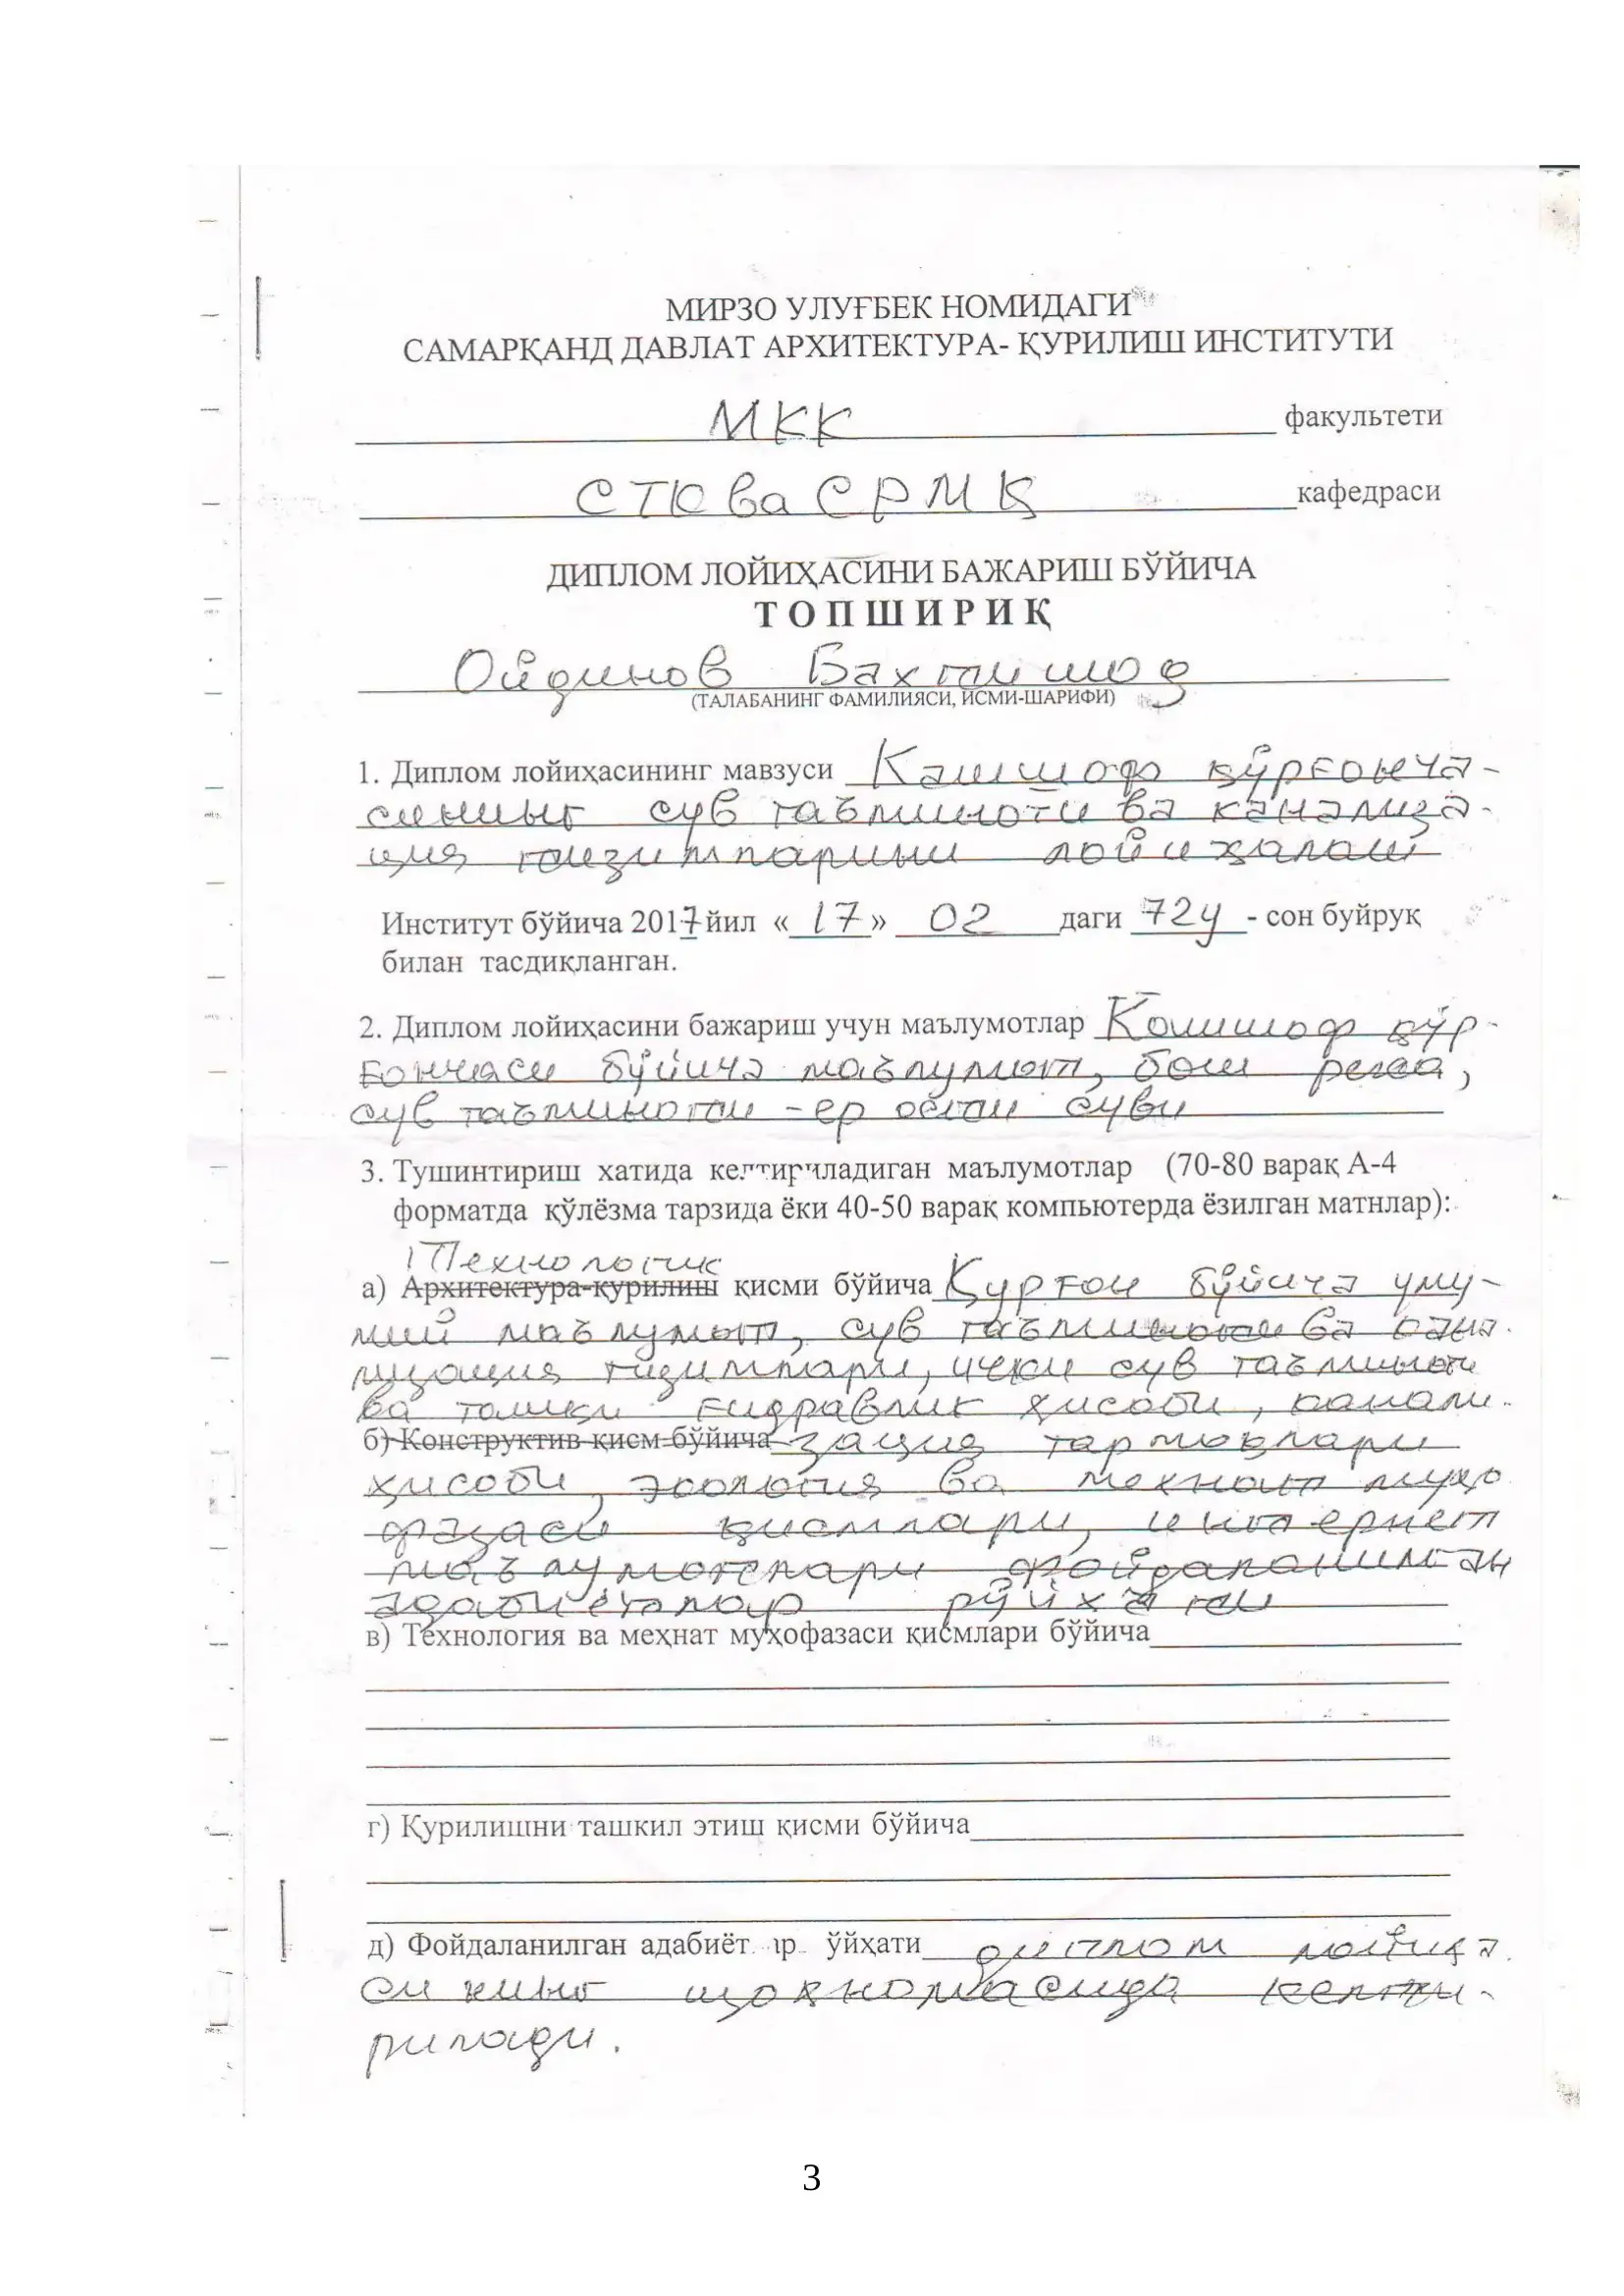 МИРЗО УЛУҒБЕК НОМИДАГИ
САМАРҚАНД ДАВЛАТ АРХИТЕКТУРА- ҚУРИЛИШ ИНСТИТУТИ
МКК факультети
СТК ва СРМҚ кафедраси
ДИПЛОМ ЛОЙИҲАСИНИ БАЖАРИШ БЎЙИЧА
ТОПШИРИҚ
Ойдинов Бахтишод
(ТАЛАБАНИНГ ФАМИЛИЯСИ, ИСМИ-ШАРИФИ)
1. Диплом лойиҳасининг мавзуси Кашшоф қўрғонча-
сининг сув таъминоти ва канализа-
ция тизимларини лойиҳалаш
Институт бўйича 2017 йил «17» 02 даги 72у - сон буйруқ
билан тасдиқланган.
2. Диплом лойиҳасини бажариш учун маълумотлар Кашшоф қўр-
ғончаси бўйича маълумот, бош режа,
сув таъминоти - ер ости суви
3. Тушинтириш хатида келтириладиган маълумотлар (70-80 варақ А-4
форматда қўлёзма тарзида ёки 40-50 варақ компьютерда ёзилган матнлар):
Технологик
а) Архитектура-қурилиш қисми бўйича Қурғон бўйича уму-
мий маълумот, сув таъминоти ва кана-
лизация тизимлари, ички сув таъминоти
ва ташқи гидравлик ҳисоби, канали-
б) Конструктив қисм бўйича зация тармоқлари
ҳисоби, экология ва меҳнат муҳо
фазаси қисмлари, интернет
маълумотлари фойдаланилган
адабиётлар рўйхати
в) Технология ва меҳнат муҳофазаси қисмлари бўйича
г) Қурилишни ташкил этиш қисми бўйича
д) Фойдаланилган адабиёт ар ўйҳати диплом лойиҳа
сининг шоҳномасида келти-
рилади.
3